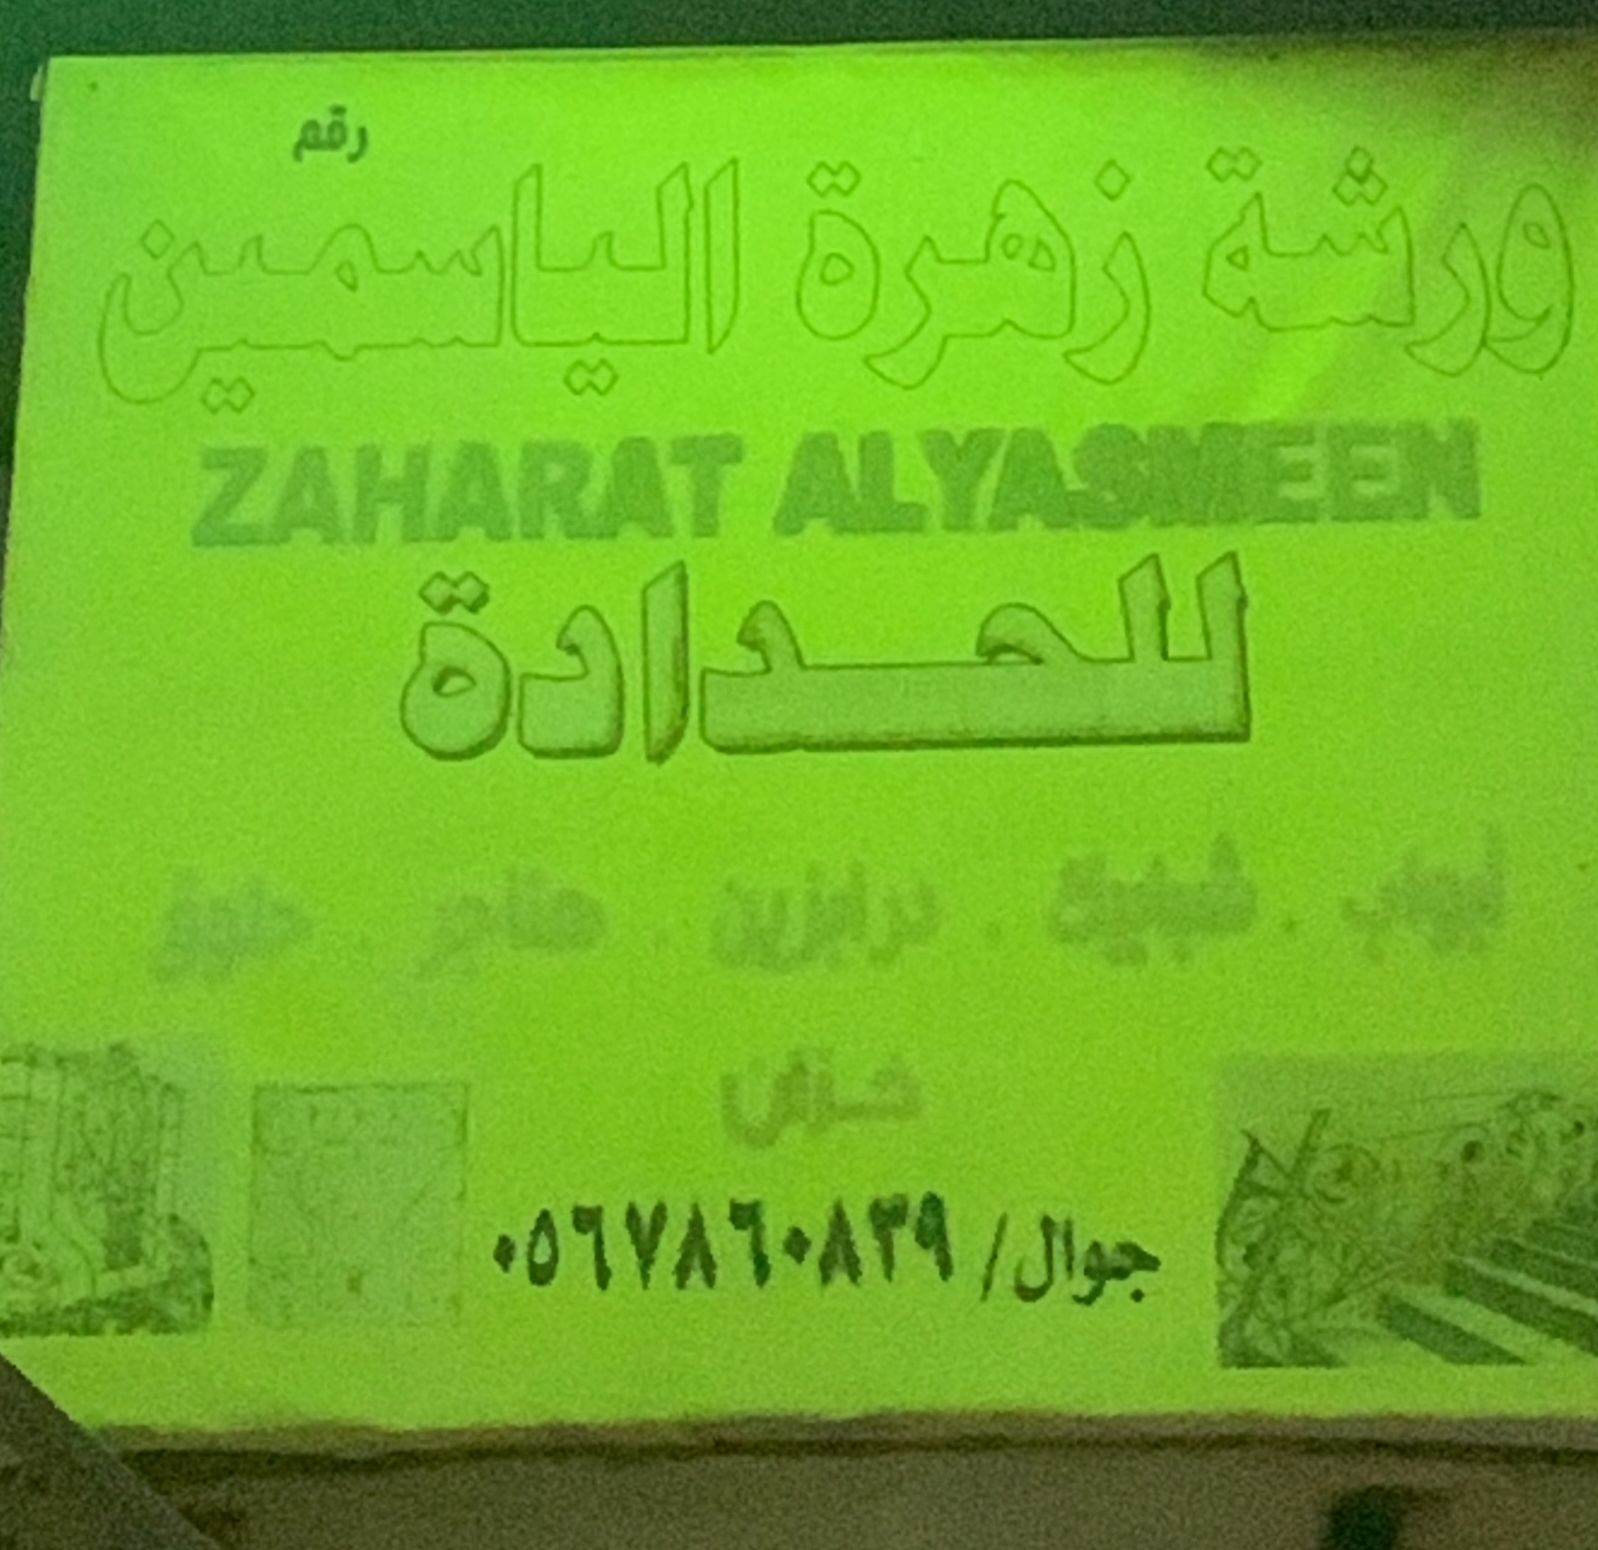 رقم
ورشة زهرة الياسمين
ZAHARAT ALYASMEEN
للحدادة
ابواب . شبابيك . درابزين . هناجر .
خزان
جوال/ ٠٥٦٧٨٦٠٨٣٩